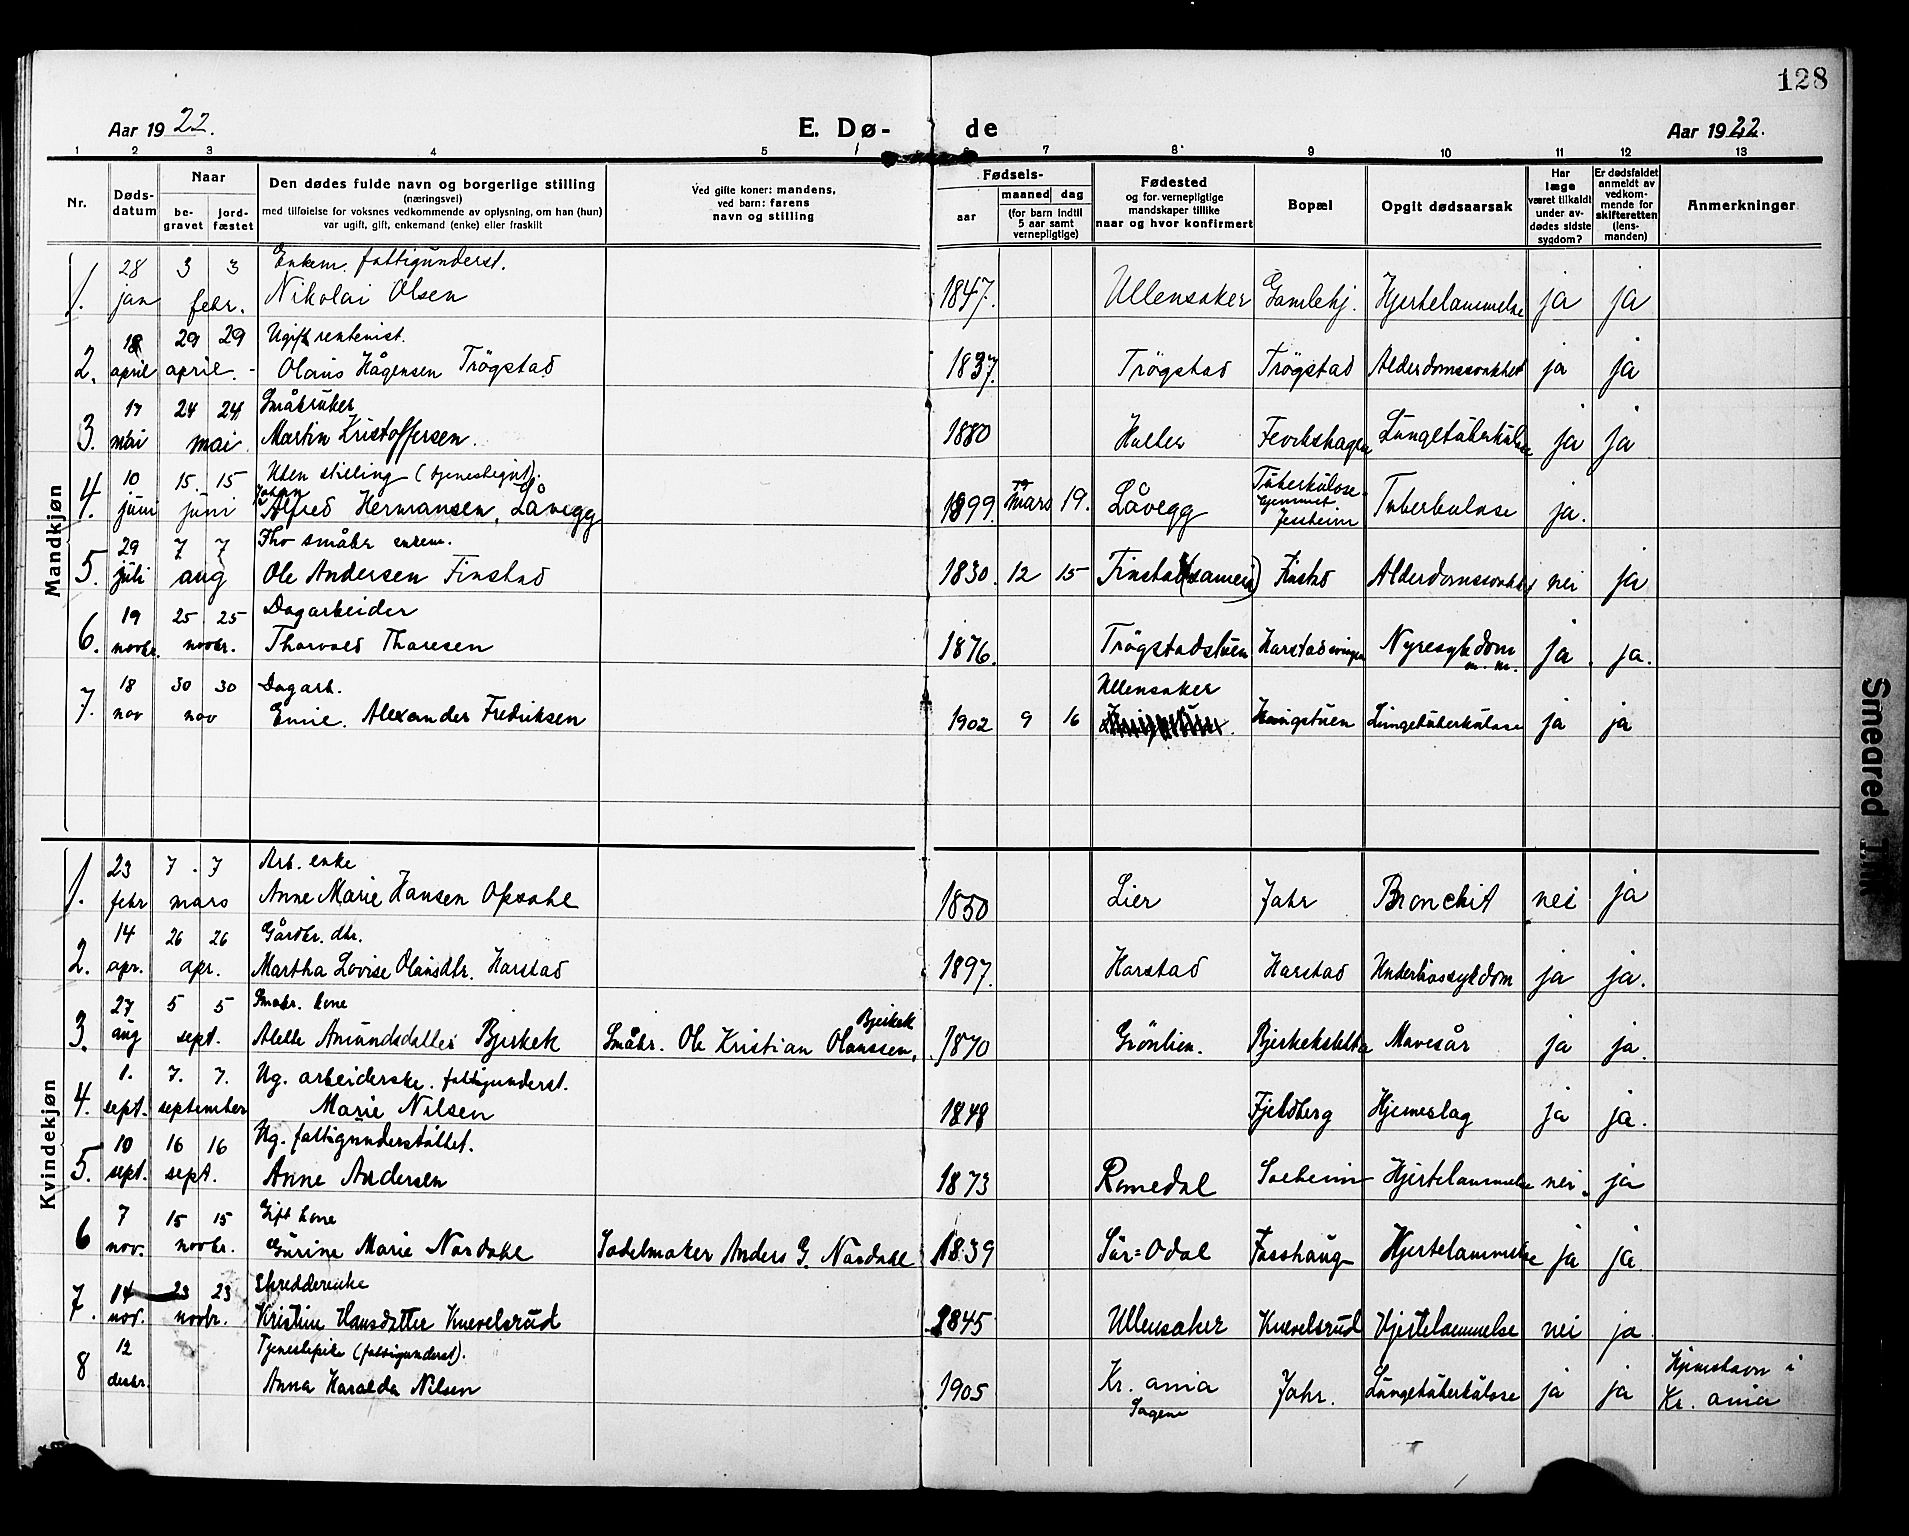 128
Aar 1922.
E. Dø-
de
Aar 1922.
1 2 3 4 5 6 7 8 9 10 11 12 13
Nr.
Døds-
datum
Naar
be-
gravet
jord-
fæstet
Den dødes fulde navn og borgerlige stilling
(næringsvei)
med tilføielse for voksnes vedkommende av oplysning, om han (hun)
var ugift, gift, enkemand (enke) eller fraskilt
Ved gifte koner: mandens,
ved barn: farens
navn og stilling
Fødsels-
aar
maaned
dag
(for barn indtil
5 aar samt
vernepligtige)
Fødested
og for vernepligtige
mandskaper tillike
naar og hvor konfirmert
Bopæl
Opgit dødsaarsak
Har
læge
været tilkaldt
under av-
dødes sidste
sygdom?
Er dødsfaldet
anmeldt av
vedkom-
mende for
skifteretten
(lens-
manden)
Anmerkninger
Mandkjøn
28 3 3 Enkem. fattigunderst.
1. jan febr. Nikolai Olsen 1847. Ullensaker Gamlehj. Hjertelammelse ja ja
18 29 29 Ugift rentenist.
2. april april. Olaus Hågensen Trögstad 1837. Trögstad Trögstad Alderdomssvakhet ja ja
17 24 24 Småbruker
3. mai mai Martin Kristoffersen. 1880 Holler Lungetuberkulose ja ja
10 15. 15 Uten stilling (tjenestegut).
4. juni juni Johan Alfred Hermansen, Låvegg 1899. mars 19. Låvegg Tuberkulose-
hjemmet
Jessheim Tuberkulose ja.
29 7 7 Fho småbr enkem.
5. juli aug Ole Andersen Finstad 1830. 12 15 Finstad (sameie) Finstad Alderdomssvakhet nei ja
19 25 25 Dagarbeider
6. novbr. novbr. Thorvald Thoresen 1876. Trögstadstuen Harstadsvingen Nyresykdom
m. m. ja. ja.
18 30 30 Dagarb. Ullensaker
7. nov nov Emil Alexander Fredriksen 1902 9 16 Haugstuen Lungetuberkulose ja ja
Kvindekjøn
23 7. 7 Arb. enke
1. febr mars Anne Marie Hansen Opsahl 1850 Lier Jahr Bronchit nei ja
14 26 26 Gårdbr. dtr.
2. apr. apr. Martha Lovise Olausdtr. Harstad 1897. Harstad Harstad Underlivssykdom ja ja.
27 5 5 Småbr. kone Bjerkek
3. aug sept. Alette Amundsdatter Bjerkek Småbr. Ole Kristian Olaussen, 1870 Grönlien. Bjerkeksletta Mavesår ja ja.
1. 7. 7. Ug. arbeiderske. fattigunderst.
4. sept. september Marie Nilsen 1848 Fjeldberg Hjerneslag ja ja.
10 16 16 Ug. fattigunderstöttet.
5. sept. sept. Anne Andersen 1873 Romedal Solheim Hjertelammelse nei. ja
7 15 15 Gift kone
6 nov. novbr. Gurine Marie Nordahl Sadelmaker Anders G. Nordahl 1839 Sör=Odal Fosshaug Hjertelammelse ja ja.
14 23 23 Skredderenke
7. nov. novbr. Kristine Hansdatter Knevelsrud 1845 Ullensaker Knevelsrud Hjertelammelse nei ja
12 Tjenestepike (fattigunderst).
8 desbr. Anna Haralda Nilsen 1905 Kr. ania
Sagene Jahr. Lungetuberkulose ja ja Hjemstavn i
Kr. ania
Smeared Ink